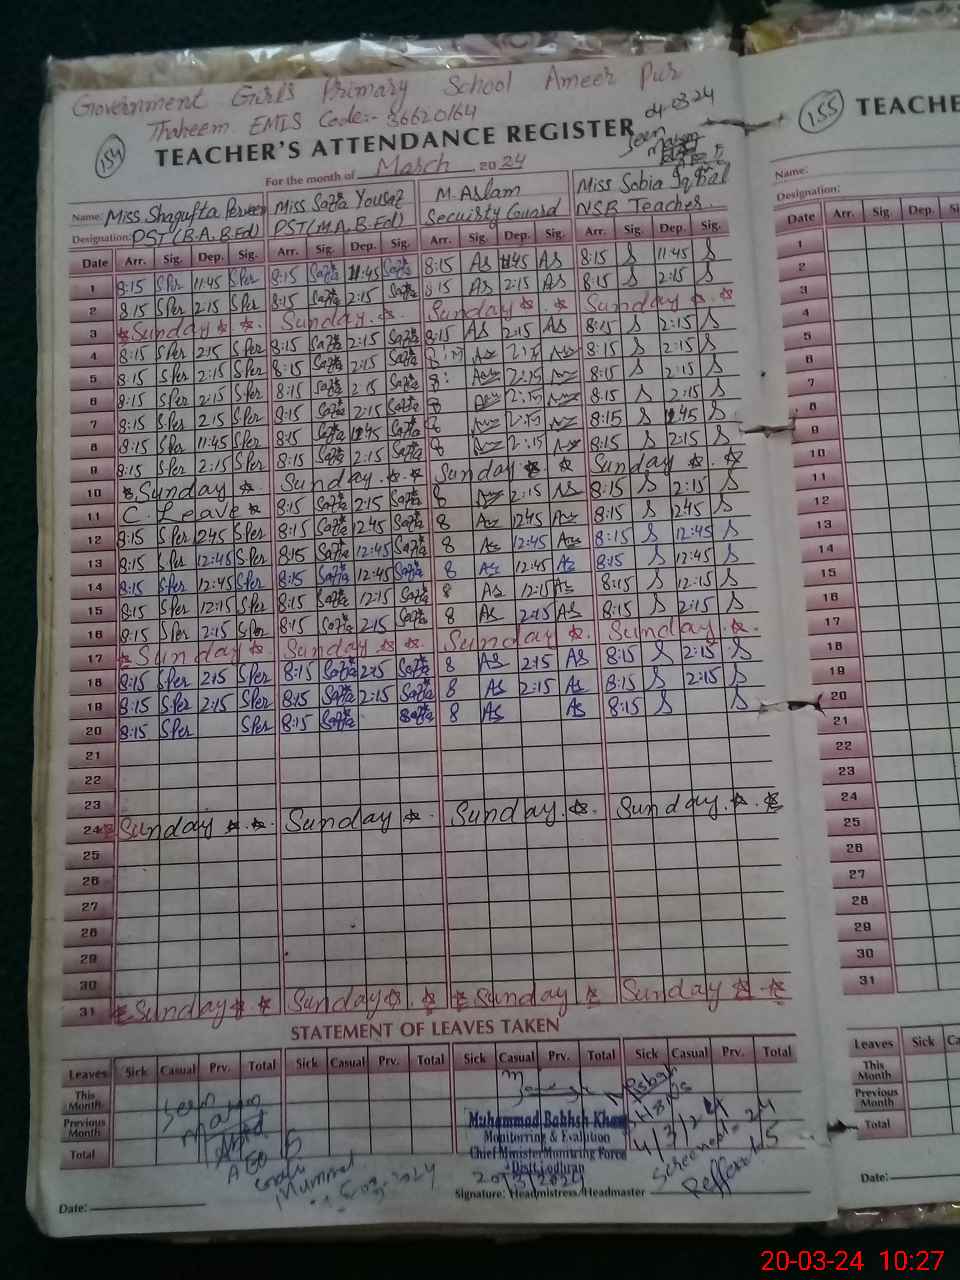 Government Girls Primary School Ameer Pur
Thaheem EMIS Code:- 36620164
04-03-24
154 TEACHER'S ATTENDANCE REGISTER Seen
For the month of March 2024
Name: Miss Shagufta Perveen Miss Safia Yousaf M. Aslam Miss Sobia Iqbal
Designation: PST (B.A, B.Ed) PST (M.A, B.Ed) Secuirty Guard NSB Teacher.
Date Arr. Sig. Dep. Sig. Arr. Sig. Dep. Sig. Arr. Sig. Dep. Sig. Arr. Sig. Dep. Sig.
1 8:15 SPer 11:45 SPer 8:15 Safia 11:45 Safia 8:15 AS 11:45 AS 8:15 S 11:45 S
2 8:15 SPer 2:15 SPer 8:15 Safia 2:15 Safia 8:15 AS 2:15 AS 8:15 S 2:15 S
3 Sunday Sunday Sunday Sunday
4 8:15 SPer 2:15 SPer 8:15 Safia 2:15 Safia 8:15 AS 2:15 AS 8:15 S 2:15 S
5 8:15 SPer 2:15 SPer 8:15 Safia 2:15 Safia 2:15 8:15 S 2:15 S
6 8:15 SPer 2:15 SPer 8:15 Safia 2:15 Safia 8: 2:15 8:15 S 2:15 S
7 8:15 SPer 2:15 SPer 8:15 Safia 2:15 Safia 8 2:15 8:15 S 2:15 S
8 8:15 SPer 11:45 SPer 8:15 Safia 11:45 Safia 8 2:15 8:15 S 11:45 S
9 8:15 SPer 2:15 SPer 8:15 Safia 2:15 Safia 8 2:15 8:15 S 2:15 S
10 Sunday Sunday Sunday Sunday
11 C. Leave 8:15 Safia 2:15 Safia 8 2:15 8:15 S 2:15 S
12 8:15 SPer 1245 SPer 8:15 Safia 1245 Safia 8 As 1245 As 8:15 S 1245 S
13 8:15 SPer 12:45 SPer 8:15 Safia 12:45 Safia 8 As 12:45 As 8:15 S 12:45 S
14 8:15 SPer 12:45 SPer 8:15 Safia 12:45 Safia 8 As 12:45 As 8:15 S 12:45 S
15 8:15 SPer 12:15 SPer 8:15 Safia 12:15 Safia 8 As 12:15 As 8:15 S 12:15 S
16 8:15 SPer 2:15 SPer 8:15 Safia 2:15 Safia 8 As 2:15 As 8:15 S 2:15 S
17 Sunday Sunday Sunday Sunday
18 8:15 SPer 2:15 SPer 8:15 Safia 2:15 Safia 8 AS 2:15 AS 8:15 S 2:15 S
19 8:15 SPer 2:15 SPer 8:15 Safia 2:15 Safia 8 AS 2:15 AS 8:15 S 2:15 S
20 8:15 SPer SPer 8:15 Safia Safia 8 AS As 8:15 S S
21
22
23
24 Sunday Sunday Sunday Sunday
25
26
27
28
29
30
31 Sunday Sunday Sunday Sunday
STATEMENT OF LEAVES TAKEN
Leaves Sick Casual Prv. Total Sick Casual Prv. Total Sick Casual Prv. Total Sick Casual Prv. Total
This Month
Previous Month
Total
Seen
Muhammad Bakhsh Khan
Monitoring & Evalution
Chief Minister Monitoring Force
Distt Lodhran
20/3/2024
Misbah
4/3/24
Screened = 24
Refferal 5
Date: Signature: Headmistress/Headmaster
155 TEACHE
Name:
Designation:
Date Arr. Sig. Dep.
1
2
3
4
5
6
7
8
9
10
11
12
13
14
15
16
17
18
19
20
21
22
23
24
25
26
27
28
29
30
31
Leaves Sick
This Month
Previous Month
Total
Date:
20-03-24 10:27